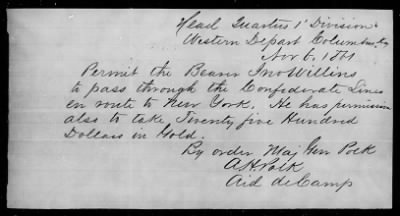 Head Quarters 1' Division
Western Depart Columbus Ky
Nov 6. 1861
Permit the Bearer Jno Willins
to pass through the Confederate Lines
en route to New York. He has permission
also to take Twenty five Hundred
Dollars in Gold.
By order Maj Gen Polk
A H Polk
Aid de Camp